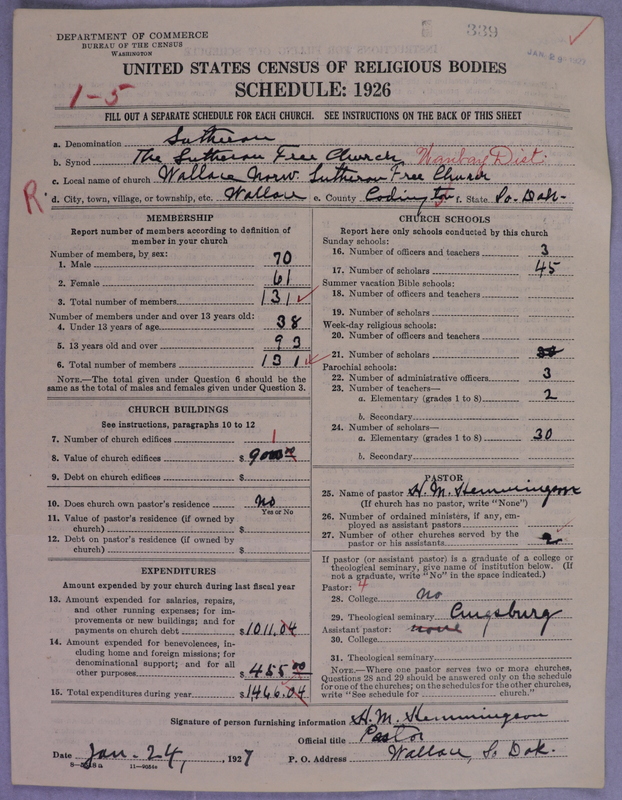 339
DEPARTMENT OF COMMERCE
BUREAU OF THE CENSUS
WASHINGTON
UNITED STATES CENSUS OF RELIGIOUS BODIES
SCHEDULE: 1926
1-5
FILL OUT A SEPARATE SCHEDULE FOR EACH CHURCH. SEE INSTRUCTIONS ON THE BACK OF THIS SHEET
a. Denomination Lutheran
b. Synod The Lutheran Free Church, Dist.
c. Local name of church Wallace Norw. Lutheran Free Church
R
d. City, town, village, or township, etc. Wallace e. County Codington f. State So. Dak.
MEMBERSHIP
Report number of members according to definition of
member in your church
Number of members, by sex:
1. Male 70
2. Female 61
3. Total number of members 131
Number of members under and over 13 years old:
4. Under 13 years of age 38
5. 13 years old and over 93
6. Total number of members 131
NOTE.—The total given under Question 6 should be the
same as the total of males and females given under Question 3.
CHURCH BUILDINGS
See instructions, paragraphs 10 to 12
7. Number of church edifices 1
8. Value of church edifices $ 9000.00
9. Debt on church edifices $
10. Does church own pastor's residence no
Yes or No
11. Value of pastor's residence (if owned by
church) $
12. Debt on pastor's residence (if owned by
church) $
EXPENDITURES
Amount expended by your church during last fiscal year
13. Amount expended for salaries, repairs,
and other running expenses; for im-
provements or new buildings; and for
payments on church debt $ 1011.04
14. Amount expended for benevolences, in-
cluding home and foreign missions; for
denominational support; and for all
other purposes $ 455.00
15. Total expenditures during year $ 1466.04
CHURCH SCHOOLS
Report here only schools conducted by this church
Sunday schools:
16. Number of officers and teachers 3
17. Number of scholars 45
Summer vacation Bible schools:
18. Number of officers and teachers
19. Number of scholars
Week-day religious schools:
20. Number of officers and teachers
21. Number of scholars
Parochial schools:
22. Number of administrative officers 3
23. Number of teachers—
a. Elementary (grades 1 to 8) 2
b. Secondary
24. Number of scholars—
a. Elementary (grades 1 to 8) 30
b. Secondary
PASTOR
25. Name of pastor H. M. Hemmingson
(If church has no pastor, write "None")
26. Number of ordained ministers, if any, em-
ployed as assistant pastors
27. Number of other churches served by the
pastor or his assistants 2
If pastor (or assistant pastor) is a graduate of a college or
theological seminary, give name of institution below. (If
not a graduate, write "No" in the space indicated.)
Pastor: 4
28. College no
29. Theological seminary Augsburg
Assistant pastor: none
30. College
31. Theological seminary
NOTE.—Where one pastor serves two or more churches,
Questions 28 and 29 should be answered only on the schedule
for one of the churches; on the schedules for the other churches,
write "See schedule for church."
Signature of person furnishing information H. M. Hemmingson
Official title Pastor
Date Jan. 24, 1927 P. O. Address Wallace, So. Dak.
11-9034